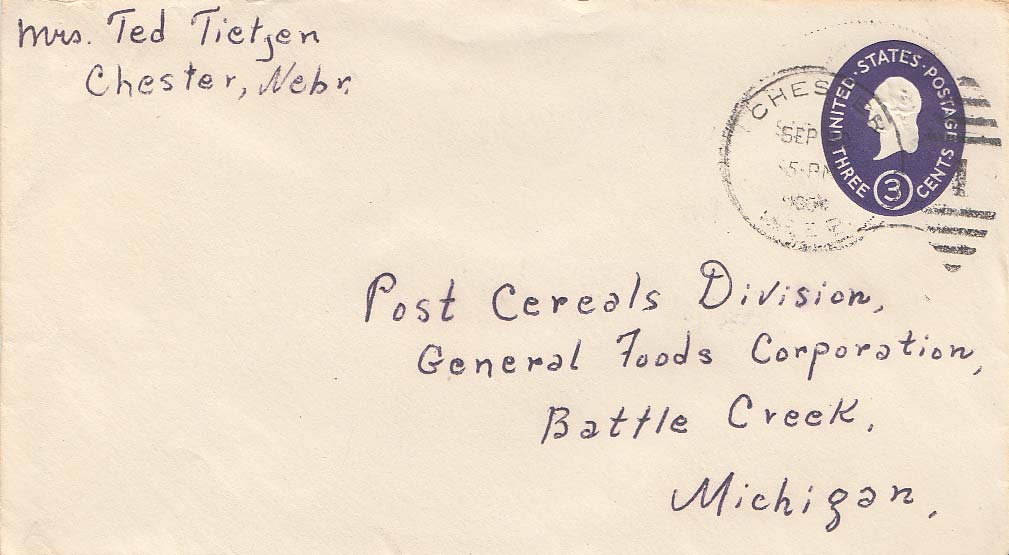 Mrs. Ted Tietjen
Chester, Nebr.
UNITED·STATES·POSTAGE
THREE 3 CENTS
SEP
5-PM
Post Cereals Division,
General Foods Corporation,
Battle Creek,
Michigan.